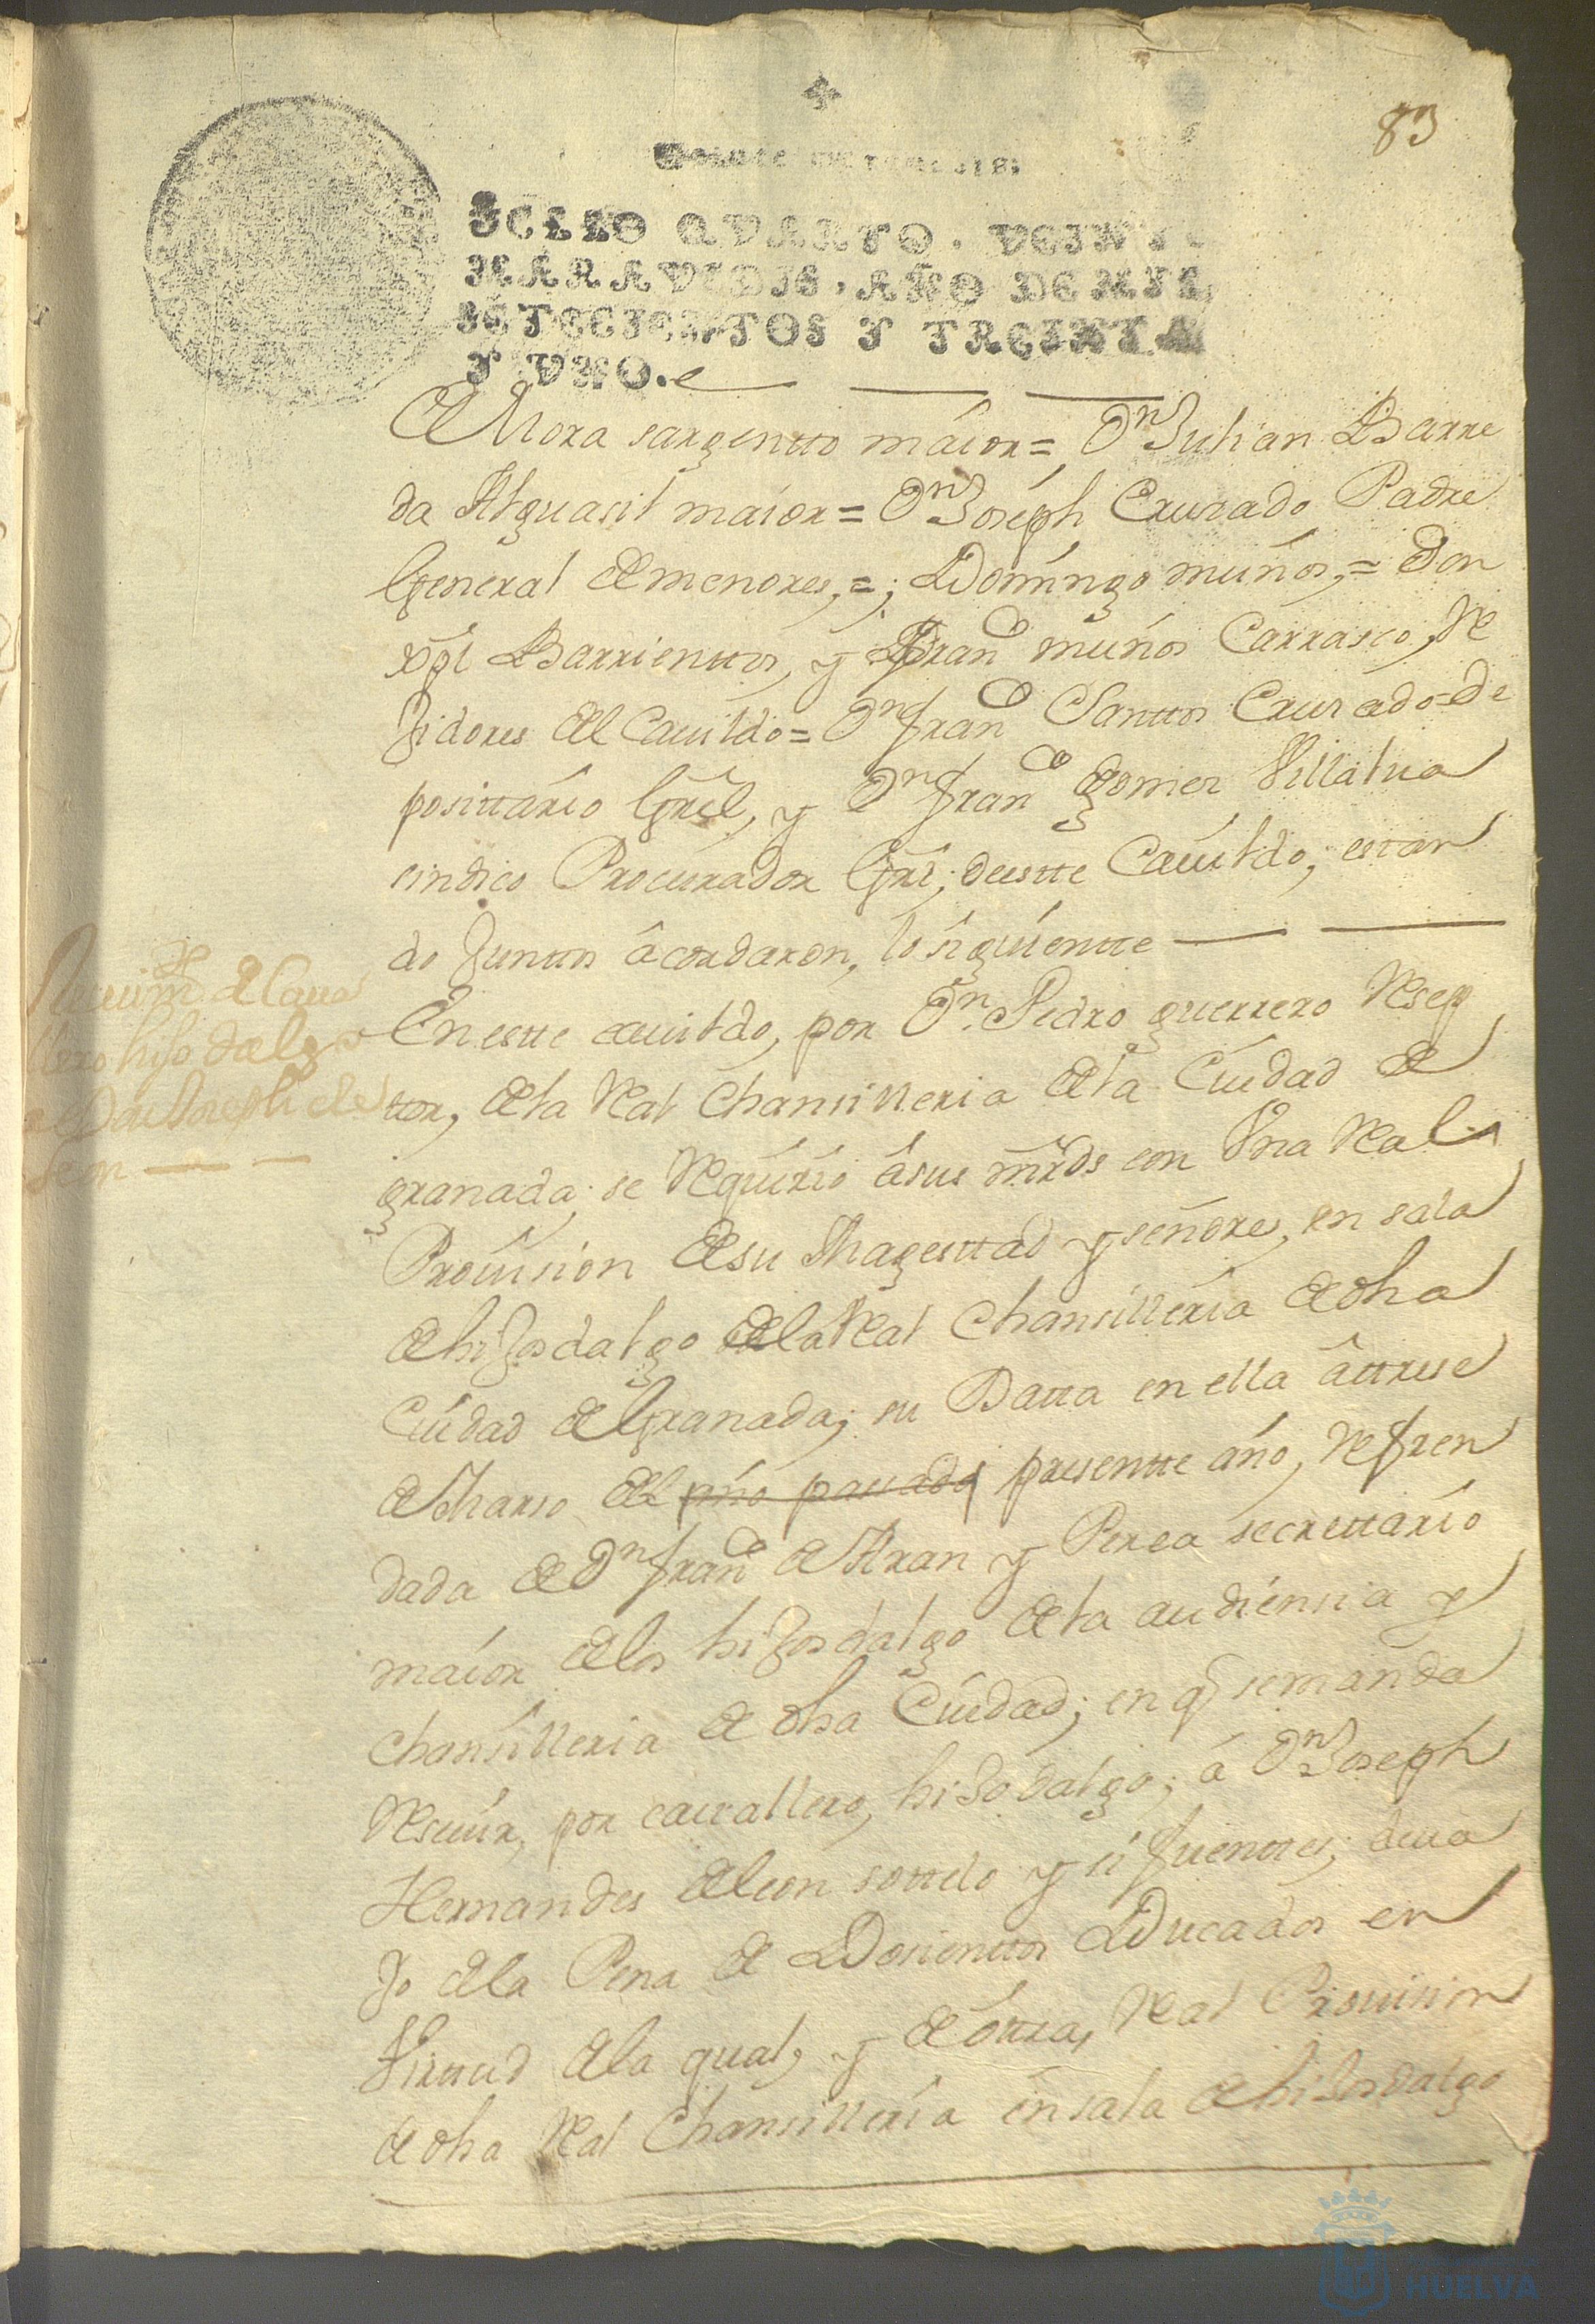 83
SELLO QVARTO, VEINTE
MARAVEDIS, AÑO DE MIL
SETECIENTOS Y TREINTA
Y VNO.
de Mora sargentto máior = Dn Julian Barre
da Alguasil maior = Dn Joseph Crusado Padre
General de menores, =; Domingo muños, = Don
xpl Barrienttos, y Franco muños Carrasco, Re
Jidores del Cauildo = Dn Franco Santtos Crusado = De
posittário Grel, y Dn Franco gomes Villalua
sindico Procurador Grl; deestte Cauildo; estan
do Junttos âcordaron, lo siguientte
Reciuimto de Caua
llero hijo dalgo
de Dn Joseph de
leon
En estte cauildo, por Dn Pedro guerrero Resep
ttor, de la Real Chansilleria de la Ciudad de
granada; se Requirio âsus mrds con Vna Real
Prouision de su Magesttad y señores, en sala
de hiJosdalgo de la Real Chansilleria de dha
Ciudad de Granada; su Datta en ella âttrese
de Marso del pño passado presentte año, Refren
dada de Dn Franco de Aran y Perea secrettario
maior de los hiJosdalgo de la audiensia y
chansilleria de dha Ciudad; en q se manda
Resiuir, por cauallero, hiJo dalgo; á Dn Joseph
Hernandes de leon sottelo y sifuenttes; deua
Jo de la Pena de Dosienttos Ducados en
Virttud de la qual, y de ôttra, Real Prouision
de dha Real Chansilleria en sala de hiJosdalgo
HUELVA